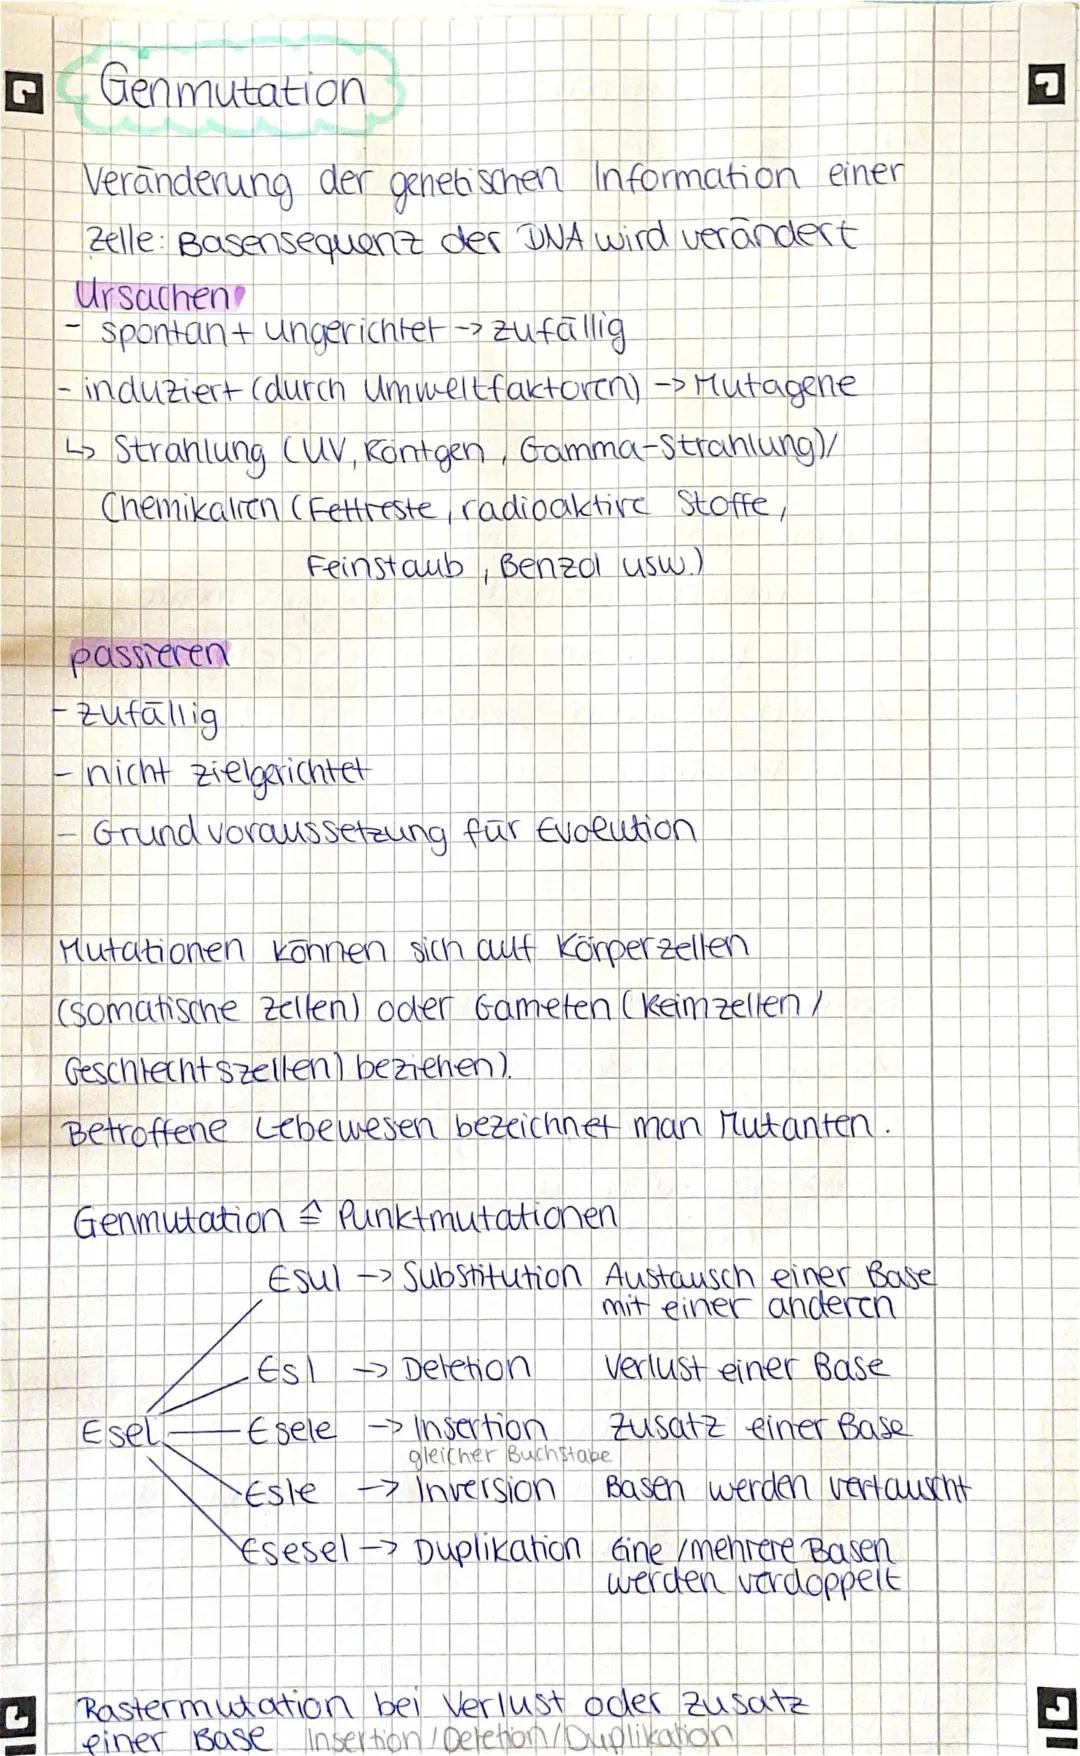 Genmutation
Veränderung der genetischen Information einer
Zelle: Basensequenz der DNA wird verändert
Ursachen
- spontan + ungerichtet -> zufällig
- induziert (durch Umweltfaktoren) -> Mutagene
↳ Strahlung (UV, Röntgen, Gamma-Strahlung)/
Chemikalien (Fettreste, radioaktive Stoffe,
Feinstaub, Benzol usw.)
passieren
- zufällig
- nicht zielgerichtet
- Grundvoraussetzung für Evolution
Mutationen können sich auf Körperzellen
(somatische Zellen) oder Gameten (Keimzellen/
Geschlechtszellen) beziehen).
Betroffene Lebewesen bezeichnet man Mutanten.
Genmutation ≙ Punktmutationen
Esul -> Substitution Austausch einer Base
mit einer anderen
Esl -> Deletion Verlust einer Base
Esel Esele -> Insertion Zusatz einer Base
gleicher Buchstabe
Esle -> Inversion Basen werden vertauscht
Esesel -> Duplikation Eine/mehrere Basen
werden verdoppelt
Rastermutation bei Verlust oder Zusatz
einer Base Insertion/Deletion/Duplikation